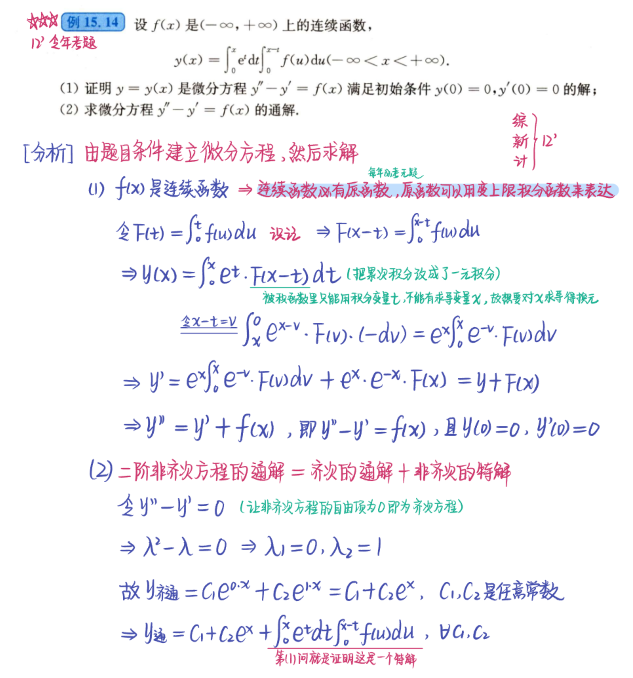 ☆☆☆ 例 15.14 设 f(x) 是(-∞, +∞) 上的连续函数,
12' 全年考题
y(x) = ∫₀ˣ eᵗdt∫₀ˣ⁻ᵗ f(u)du(-∞ < x < +∞).
(1) 证明 y = y(x) 是微分方程 y'' - y' = f(x) 满足初始条件 y(0) = 0, y'(0) = 0 的解;
(2) 求微分方程 y'' - y' = f(x) 的通解.
综
新 } 12'
计
[分析] 由题目条件建立微分方程,然后求解
(1) f(x)是连续函数 ⇒ 连续函数必有原函数,原函数可以用变上限积分函数来表达
令F(t) = ∫₀ᵗ f(u)du 设记 ⇒ F(x-t) = ∫₀ˣ⁻ᵗ f(u)du
⇒ y(x) = ∫₀ˣ eᵗ · F(x-t)dt (把累次积分改成了一元积分)
被积函数里只能用积分变量t,不能有求导变量x,故想要对x求导得换元
令x-t=v ∫ₓ⁰ eˣ⁻ᵛ · F(v) · (-dv) = eˣ∫₀ˣ e⁻ᵛ · F(v)dv
⇒ y' = eˣ∫₀ˣ e⁻ᵛ · F(v)dv + eˣ · e⁻ˣ · F(x) = y + F(x)
⇒ y'' = y' + f(x) , 即 y'' - y' = f(x) , 且 y(0) = 0, y'(0) = 0
(2) 二阶非齐次方程的通解 = 齐次的通解 + 非齐次的特解
令 y'' - y' = 0 (让非齐次方程的自由项为0即为齐次方程)
⇒ λ² - λ = 0 ⇒ λ₁ = 0, λ₂ = 1
故 y齐通 = C₁e⁰·ˣ + C₂e¹·ˣ = C₁ + C₂eˣ, C₁, C₂是任意常数
⇒ y通 = C₁ + C₂eˣ + ∫₀ˣ eᵗdt∫₀ˣ⁻ᵗ f(u)du , ∀C₁, C₂
第(1)问就是证明这是一个特解